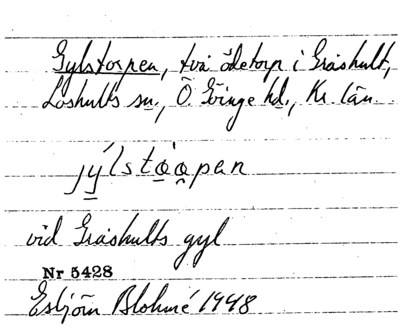 Gylstorpen, två ödetorp i Gråshult,
Loshults sn., Ö. Göinge hd., Kr. län.
jýlstɷ̀ɷpen
vid Gråshults gyl
Nr 5428
Esbjörn Blohmé 1948